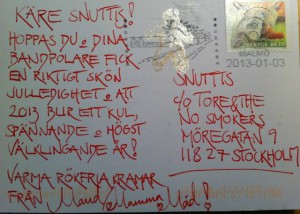 KÄRE SNUTTS!
HOPPAS DU & DINA
BANDPOLARE FICK
EN RIKTIGT SKÖN
JULLEDIGHET & ATT
2013 BLIR ETT KUL,
SPÄNNANDE & HÖGST
VÄLKLINGANDE ÅR!
VARMA RÖKFRIA KRAMAR
FRÅN Maud Mamma Mård!
MALMÖ
2013-01-03
SNUTTS
c/o TORE & THE
NO SMOKERS
MÖREGATAN 9
118 27 STOCKHOLM